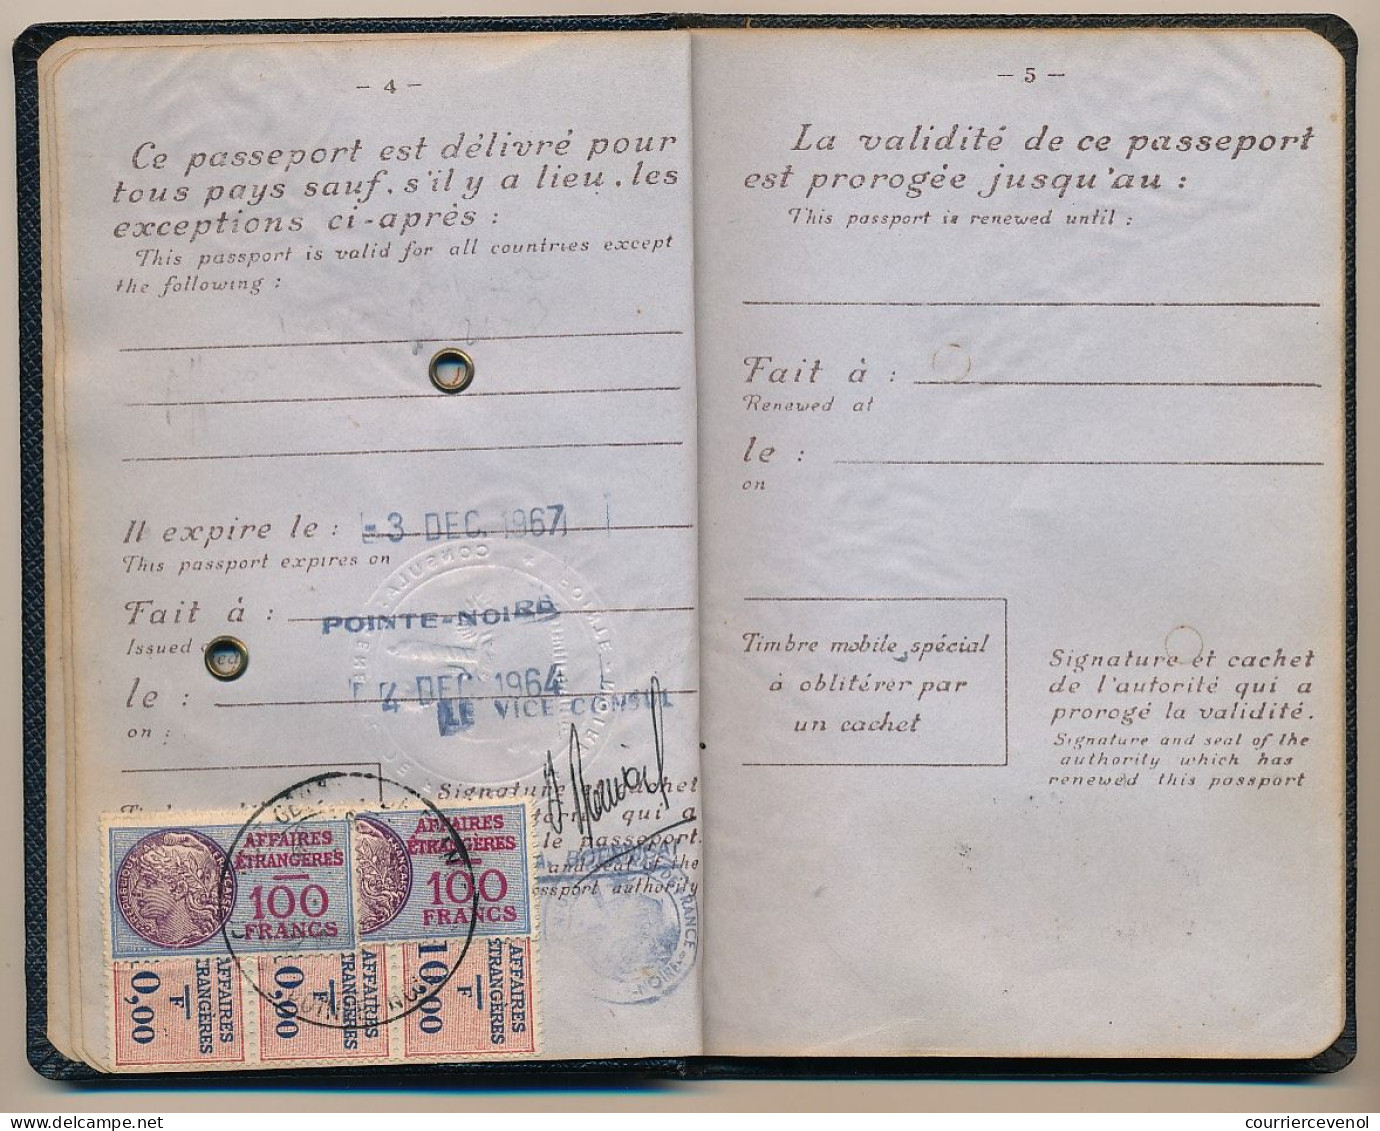 – 4 –
Ce passeport est délivré pour
tous pays sauf, s'il y a lieu, les
exceptions ci-après :
This passport is valid for all countries except
the following :
Il expire le : -3 DEC. 1967
This passport expires on
Fait à : POINTE-NOIRE
Issued
le : 4 DEC. 1964
LE VICE CONSUL
on :
Signature cachet
qui a
le passeport.
and seal of the
authority
AFFAIRES
ÉTRANGÈRES
100
FRANCS
AFFAIRES
ÉTRANGÈRES
100
FRANCS
AFFAIRES
TRANGÈRES
F
0,00
AFFAIRES
TRANGÈRES
F
0,00
AFFAIRES
TRANGÈRES
F
10,00
– 5 –
La validité de ce passeport
est prorogée jusqu'au :
This passport is renewed until :
Fait à :
Renewed at
le :
on
Timbre mobile spécial
à oblitérer par
un cachet
Signature et cachet
de l'autorité qui a
prorogé la validité.
Signature and seal of the
authority which has
renewed this passport
courriercevenol.com